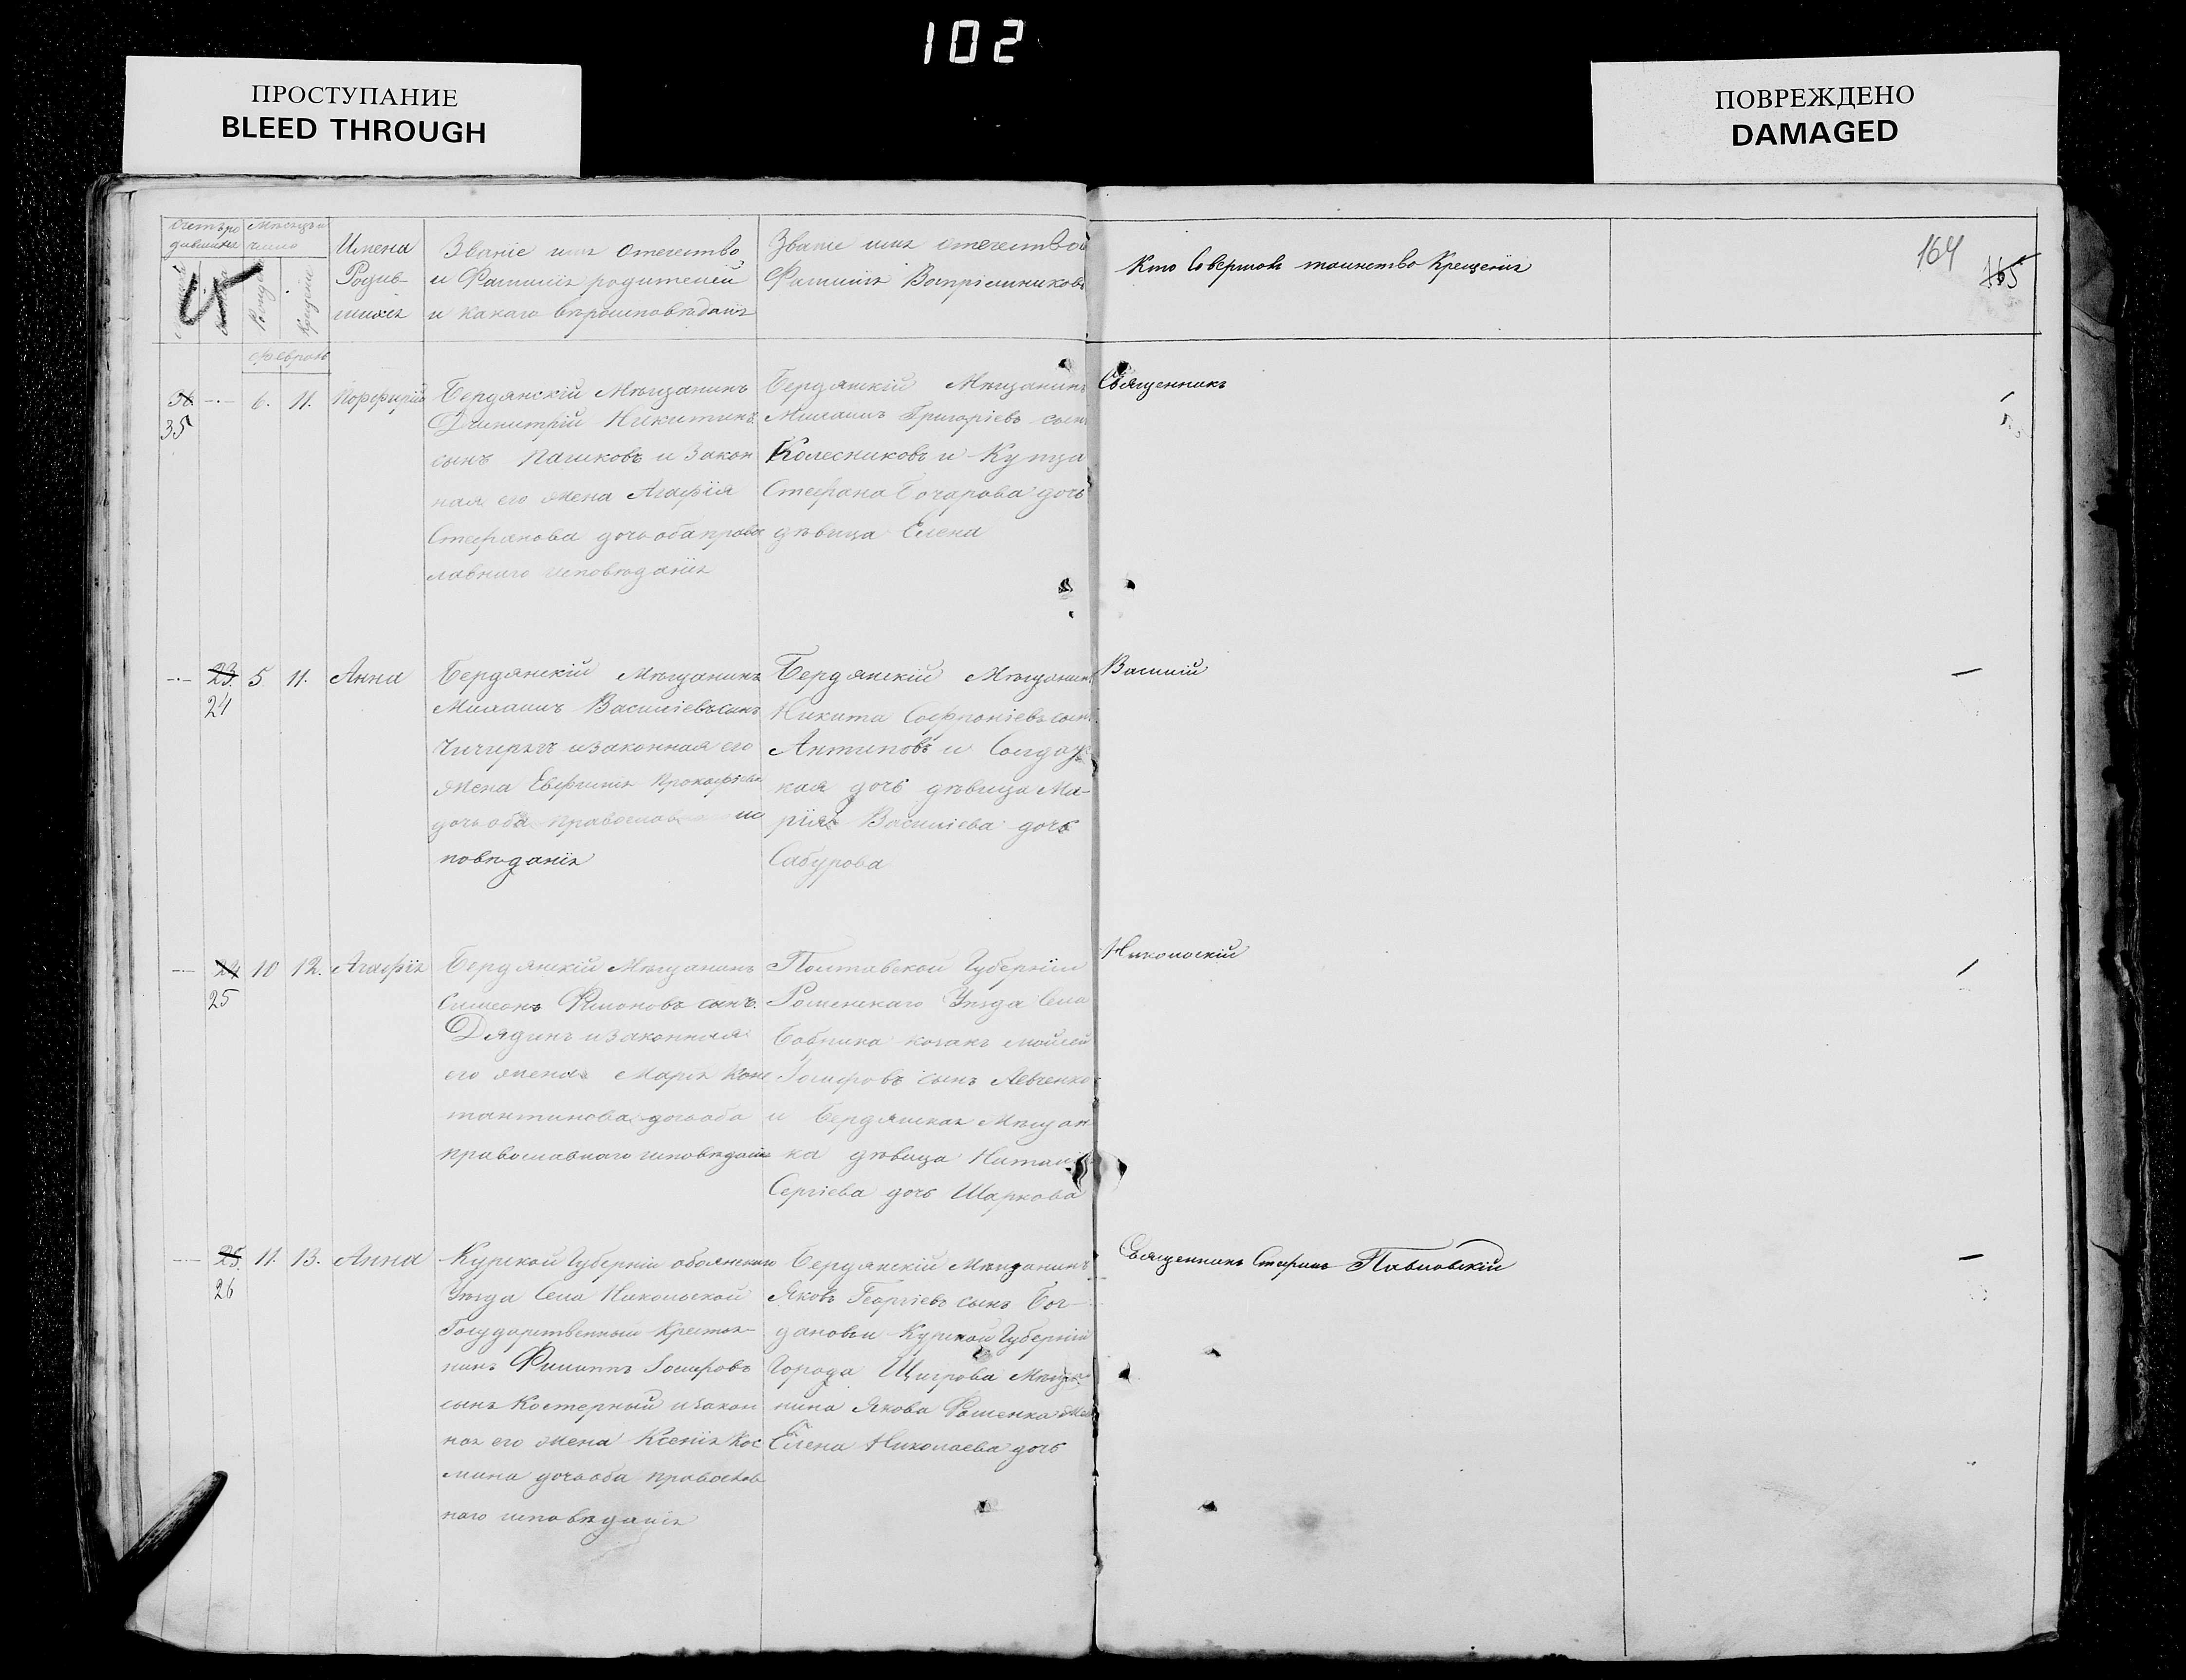 102
ПРОСТУПАНИЕ
BLEED THROUGH
ПОВРЕЖДЕНО
DAMAGED
164
165
Имена
Родив-
шихся
Званіе имя отечество
и Фамилія родителей
и какаго вѣроисповѣданія
Званіе имя отечество и
Фамилія Воспріемниковъ
Кто Совершалъ таинство Крещенія
15
Февраль
36
35
6. 11. Порфирій
Бердянскій Мѣщанинъ
Димитрій Никитинъ
сынъ Пашковъ и Закон
ная его жена Агафія
Стефанова дочь оба правос
лавнаго исповѣданія
Бердянскій Мѣщанинъ
Михаилъ Григоріевъ сынъ
Колесниковъ и Купца
Стефана Бочарова дочь
дѣвица Елена
Священникъ
23
24
5 11. Анна
Бердянскій Мѣщанинъ
Михаилъ Василіевъ сынъ
и законная его
жена Евфимія Прокофіева
дочь оба православ ис
повѣданія
Бердянскій Мѣщанинъ
Никита Софроніевъ сынъ
Антиповъ и Солдат
кая дочь дѣвица Ма-
рія Василіева дочь
Сабурова
Василій
24
25
10 12. Агафія
Бердянскій Мѣщанинъ
Симеонъ Филоновъ сынъ
Дядинъ и законная
его жена Марія Конс
тантинова дочь оба
православнаго исповѣданія
Полтавской Губерніи
Роменскаго Уѣзда Села
Бобрика козакъ Моисей
Іосифовъ сынъ Левченко
и Бердянская Мѣщан
ка дѣвица Натал
Сергіева дочь Шаркова
Никольскій
25
26
11. 13. Анна
Курской Губерніи обоянскаго
Уѣзда Села Никольской
Государственный Крестья-
нинъ Филиппъ Іосифовъ
сынъ Костерный и закон
ная его жена Ксенія Кос
мина дочь оба православ
наго исповѣданія
Бердянскій Мѣщанинъ
Яковъ Георгіевъ сынъ Бог-
дановъ и Курской Губерніи
Города Щигрова Мѣща
нина Якова жена
Елена Николаева дочь
Священникъ Стефанъ Павловскій